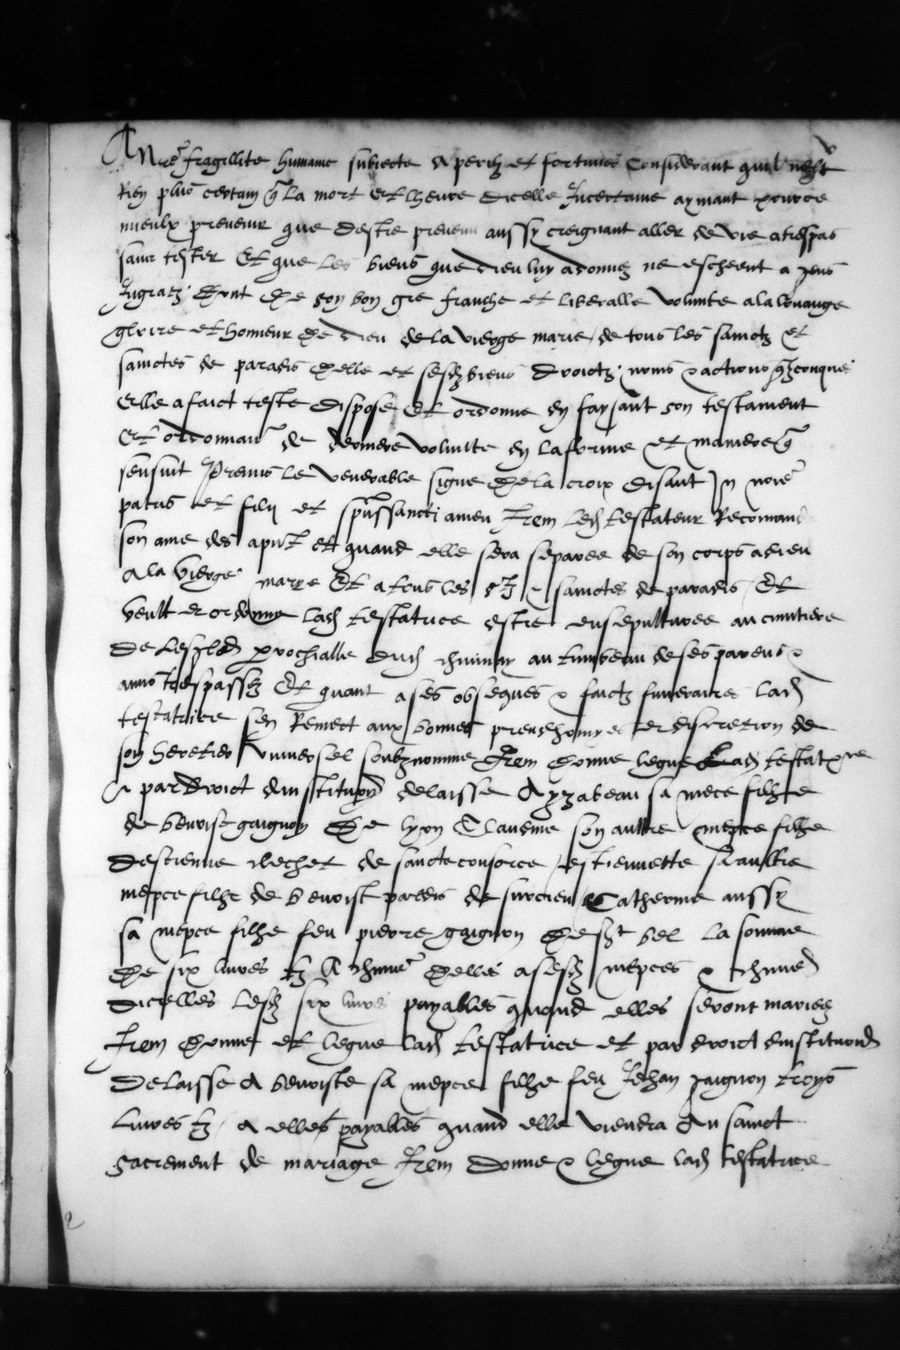 A nre fragillite humaine subiecte a perilz et fortunes Considerant quil nest
Rien plus certain q la mort et lheure dicelle Incertaine aymant
mieulx prevenir que destre prevenu aussy creignant aller de vie a trespas
sans tester Et que les biens que dieu luy a donnez ne escheent a gens
Ingratz dont De son bon gre franche et liberalle volunte a la louange
gloire et honneur De dieu de la vierge marie de tous les sainctz et
sainctes de paradis Delle et sesd biens droictz noms & actions qzconques
Elle a faict teste dispose Et ordonne Et faysant son testament
Et ordonnan de derniere volunte en la forme et maniere q
sensuit Premis le venerable signe De la croix disant In noie
patris et filii et spussancti amen Item led testateur Recomand
son ame des apnt et quand elle sera separee de son corps a dieu
A la vierge marie Et a tous les stz & sainctes de paradis Et
veult et ordonne lad testatrice estre ensepulturee au cimitiere
de lesglse parrochialle dud au tumbeau de ses parens &
amis trespassez Et quant a ses obseques & faictz funeraires lad
testatrice sen Remect aux bonnes preudhomyes et discretion de
son heretier vniversel soubz nomme Item donne legue Lad testatrice
Et par droict dinstitution delaisse A yzabeau sa niece filhe
de benoist gaignon De lyon Claudine son aultre niepce filhe
destienne de saincte consorce estiennette sa aultre
niepce filhe de benoist paredis de surcieu Catherine aussy
sa niepce filhe feu pierre gaignon De st bel la somme
De six livres tz A chune Delles a sesd niepces & chune
dicelles Lesd six livres payables quand elles seront mariez
Item donne et legue lad testatrice et par droict dinstitution
Delaisse A benoiste sa niepce filhe feu Jehan gaignon troys
Livres tz A elles payables quand elle viendra Au sainct
sacrement de mariage Item donne & legue lad testatrice